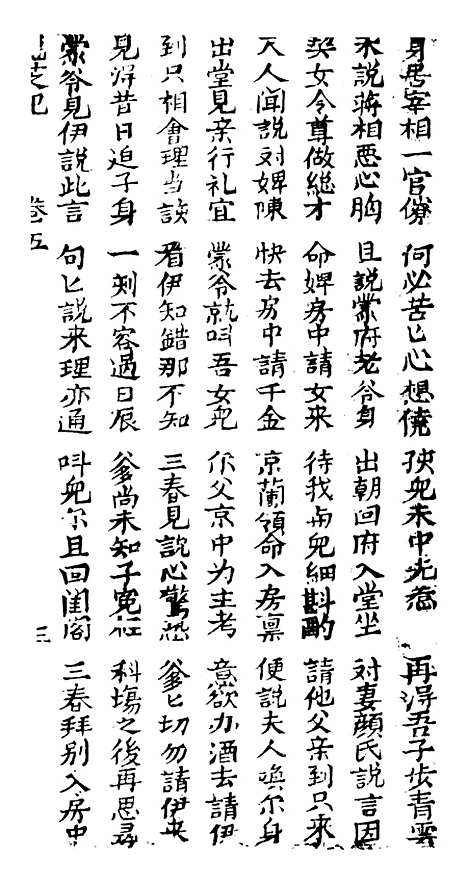 身居宰相一官僚 何必苦匕心想僥 殀兒未中先悲 再淂吾子步青雲
未說蔣相悪心胸 且說蒙府老爷身 出朝回府入堂坐 对妻顔氏說言因
契女令尊做総才 命婢房中請女来 待我与兒細斟酌 請他父亲到只来
夫人闻說对婢陳 快去房中請千金 京蘭領命入房禀 便說夫人喚尔身
出堂見亲行礼宜 蒙爷就叫吾女兒 你父京中为主考 意欲办酒去請伊
到只相會理当談 看伊知錯那不知 三春見說心驚恐 爹匕切勿請伊来
見淂昔日迫子身 一刻不容過日辰 爹尚未知子寃枉 科塲之後再思尋
蒙爷見伊說此言 句匕說来理亦通 叫兒尔且回闺阁 三春拜别入房中
卷五 三